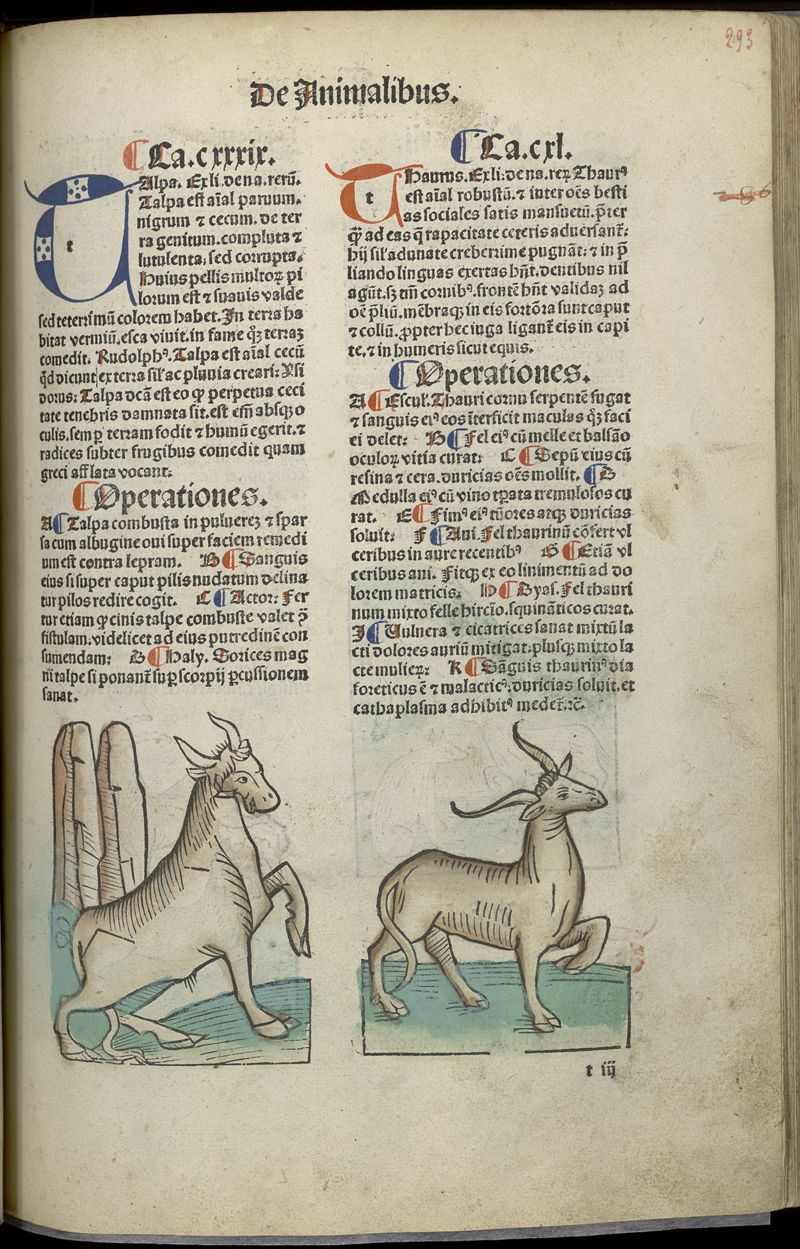 293
De Animalibus.
Ca.cxxxix.
t
TAlpa. Ex li. de na. rerū.
Talpa est aīal paruum.
nigrum ⁊ cecum. de ter
ra genitum. compluta ⁊
lutulenta, sed corrupta.
Huius pellis multoꝝ pi
lorum est ⁊ suauis valde
sed teterrimū colorem habet. In terra ha
bitat vermiū, esca viuit. in fame qꝫ terraꝫ
comedit. Rudolphꝰ. Talpa est aīal cecū
qd̄ dicunt ex terra sil' ac pluuia creari: Ysi
dorus: Talpa dcā est eo ꝙ perpetua ceci
tate tenebris damnata sit. est em̄ absqꝫ o
culis. semꝑ terram fodit ⁊ humū egerit. ⁊
radices subter frugibus comedit quam
greci afflata vocant:
Operationes.
A Talpa combusta in puluereꝫ ⁊ spar
sa cum albugine oui super faciem remedi
um est contra lepram. B Sanguis
eius si super caput pilis nudatum delina
tur pilos redire cogit. C Actor: Fer
tur etiam ꝙ cinis talpe combuste valet ꝯ̄
fistulam. videlicet ad eius putredinē con
sumendam: D Haly. Sorices mag
ni talpe si ponant̄ suꝑ scorpij ꝑcussionem
sanat.
Ca.cxl.
t
THaurus. Ex li. de na. reꝝ Thaurꝰ
est aīal robustū. ⁊ inter oēs besti
as sociales satis mansuetū. p̄ter
ꝙ ad eas q̄ rapacitate ceteris aduersant̄:
hij sil' adunate creberrime pugnāt: ⁊ in p̄
liando linguas exertas hn̄t. dentibus nil
agūt. sꝫ tm̄ cornibꝰ. frontē hn̄t validaꝫ ad
oē p̄liū. mēbraqꝫ in eis fortōra sunt caput
⁊ collū. ꝓpter hec iuga ligant̄ eis in capi
te. ⁊ in humeris sicut equis.
Operationes.
A Escul. Thauri cornu serpentē fugat
⁊ sanguis eiꝰ eos īterficit maculas qꝫ faci
ei delet: B Fel eiꝰ cū melle et balsāo
oculoꝝ vitia curat: C Sepū eius cū
resina ⁊ cera. duricias oēs mollit. D
Medulla eiꝰ cū vino tꝑata tremulosos cu
rat. E Fimꝰ eiꝰ tūores atqꝫ duricias
soluit: F Aui. Fel thaurinū cōfert vl
ceribus in aure recentibꝰ G Etiā vl
ceribus ani. Fitqꝫ ex eo linimentū ad do
lorem matricis. H Dyas. Fel thauri
num mixto felle hircīo. squināticos curat.
I Vulnera ⁊ cicatrices sanat mixtū la
cti dolores auriū mitigat: plusqꝫ mixto la
cte mulieꝝ: K Sāguis thaurinꝰ dia
foreticus ē ⁊ malacticꝰ, duricias soluit. et
cathaplasma adhibitꝰ medet̄. ⁊c̄.
t iij